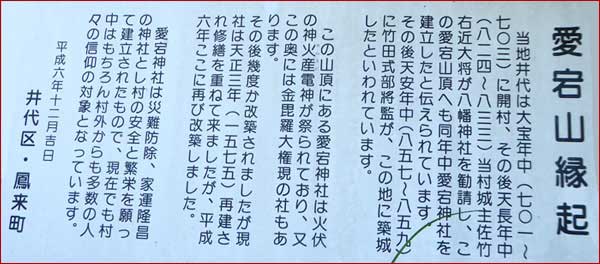 愛宕山縁起
当地井代は大宝年中(七〇一~
七〇三)に開村、その後天長年中
(八二四~八三三)当村城主佐竹
右近大将が八幡神社を勧請し、こ
の愛宕山頂へも同年中愛宕神社を
建立したと伝えられています。
その後天安年中(八五七~八五九)
に竹田式部将監が、この地に築城
したといわれています。
この山頂にある愛宕神社は火伏
の神火産電神が祭られており、又
この奥には金毘羅大権現の社もあ
ります。
その後幾度か改築されましたが現
社は天正三年(一五七五)再建さ
れ修繕を重ねて来ましたが、平成
六年ここに再び改築しました。
愛宕神社は災難防除、家運隆昌
の神社とし村の安全と繁栄を願っ
て建立されたもので、現在でも村
中はもちろん村外からも多数の人
々の信仰の対象となっています。
平成六年十二月吉日
井代区・鳳来町